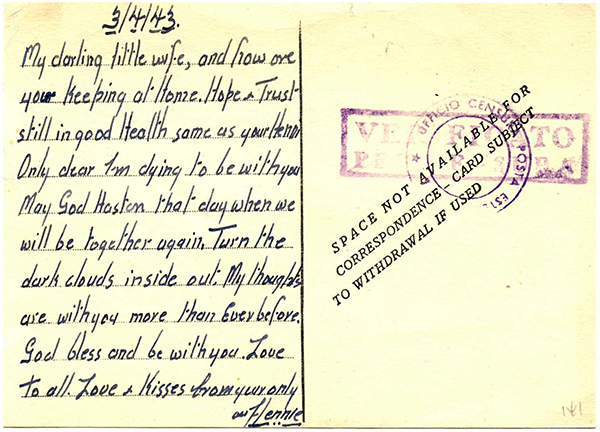 3/4/43.
My darling little wife, and how are
you keeping at Home. Hope & Trust
still in good Health same as your Hennie
Only dear I'm dying to be with you
May God Hasten that day when we
will be together again, Turn the
dark clouds inside out. My thoughts
are with you more than Ever before.
God bless and be with you. Love
to all. Love & Kisses from your only
Hennie
VE
TO
UFFICIO CENSURA POSTA ESTERA
SPACE NOT AVAILABLE FOR
CORRESPONDENCE – CARD SUBJECT
TO WITHDRAWAL IF USED